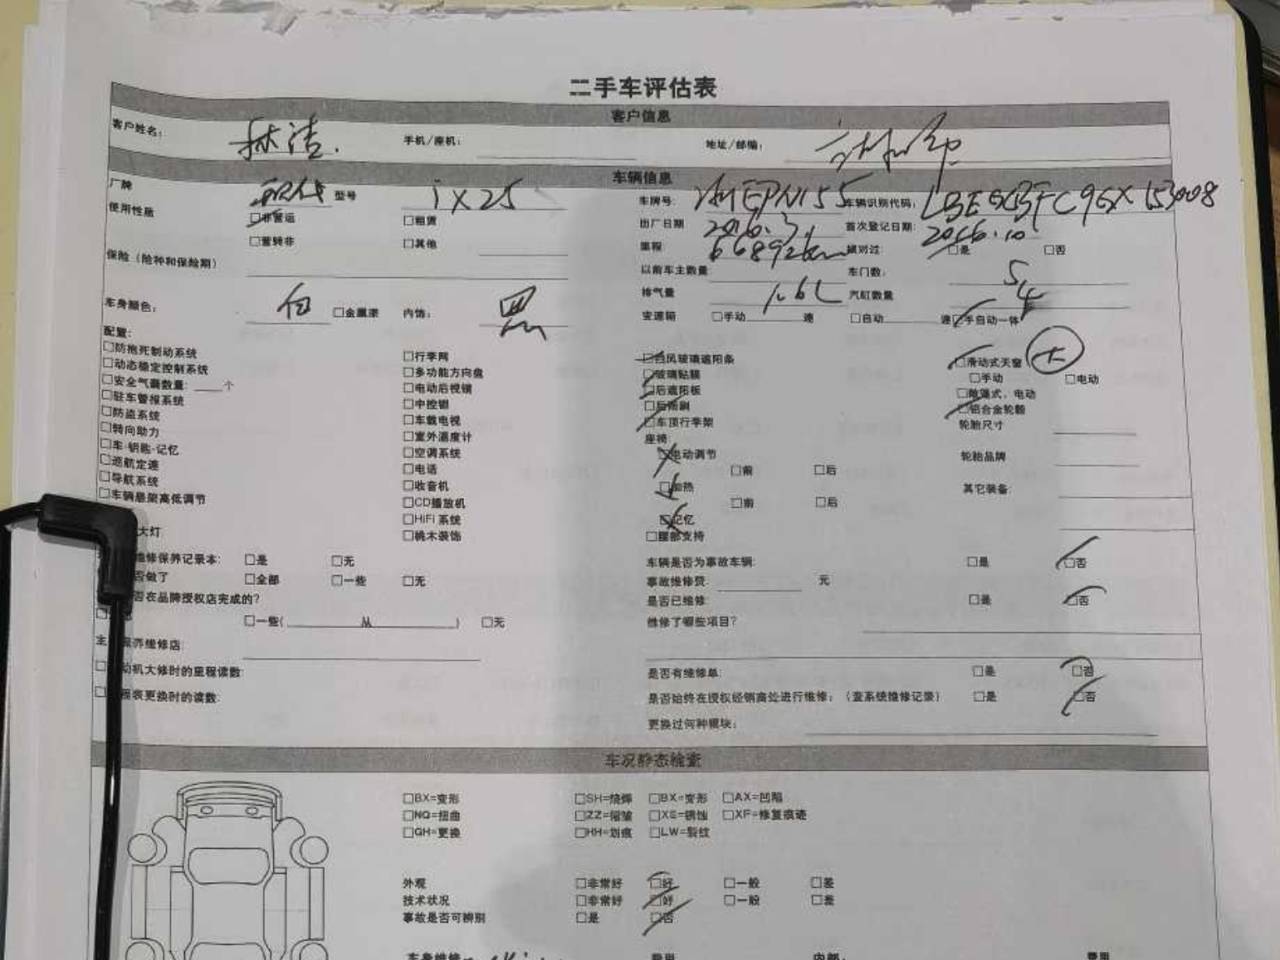 二手车评估表
客户信息
客户姓名： 林洁. 手机/座机： 地址/邮编：
车辆信息
厂牌 现代 型号 ix25 车牌号： 车辆识别代码：
使用性质 □非营运 □租赁 出厂日期 2016.3. 首次登记日期： 2016.10
□营转非 □其他 里程 66892km 核对过： □是 □否
保险（险种和保险期） 以前车主数量 车门数： 5
排气量 1.6L 汽缸数量 4
车身颜色： 白 □金属漆 内饰： 黑 变速箱 □手动 速 □自动 速 □手自动一体
配置：
□防抱死制动系统 □行李网 □挡风玻璃遮阳条 □滑动式天窗 大
□动态稳定控制系统 □多功能方向盘 □玻璃贴膜 □手动 □电动
□安全气囊数量: 个 □电动后视镜 □后遮阳板 □敞篷式，电动
□驻车警报系统 □中控锁 □后雨刷 □铝合金轮毂
□防盗系统 □车载电视 □车顶行李架 轮胎尺寸
□转向助力 □室外温度计 座椅:
□车-钥匙-记忆 □空调系统 □电动调节 轮胎品牌
□巡航定速 □电话 □前 □后
□导航系统 □收音机 □加热 其它装备:
□车辆悬架高低调节 □CD播放机 □前 □后
□HiFi 系统 □记忆
大灯 □桃木装饰 □腰部支持
维修保养记录本： □是 □无 车辆是否为事故车辆: □是 □否
否做了 □全部 □一些 □无 事故维修费: 元
否在品牌授权店完成的? 是否已维修: □是 □否
□一些( 从 ) □无 维修了哪些项目?
养维修店:
动机大修时的里程读数: 是否有维修单 □是 □否
程表更换时的读数: 是否始终在授权经销商处进行维修：（查系统维修记录） □是 □否
更换过何种模块：
车况静态检查
□BX=变形 □SH=烧焊 □BX=变形 □AX=凹陷
□NQ=扭曲 □ZZ=褶皱 □XS=锈蚀 □XF=修复痕迹
□GH=更换 □HH=划痕 □LW=裂纹
外观 □非常好 □好 □一般 □差
技术状况 □非常好 □好 □一般 □差
事故是否可辨别 □是 □否
车身维修 费用 内部： 费用